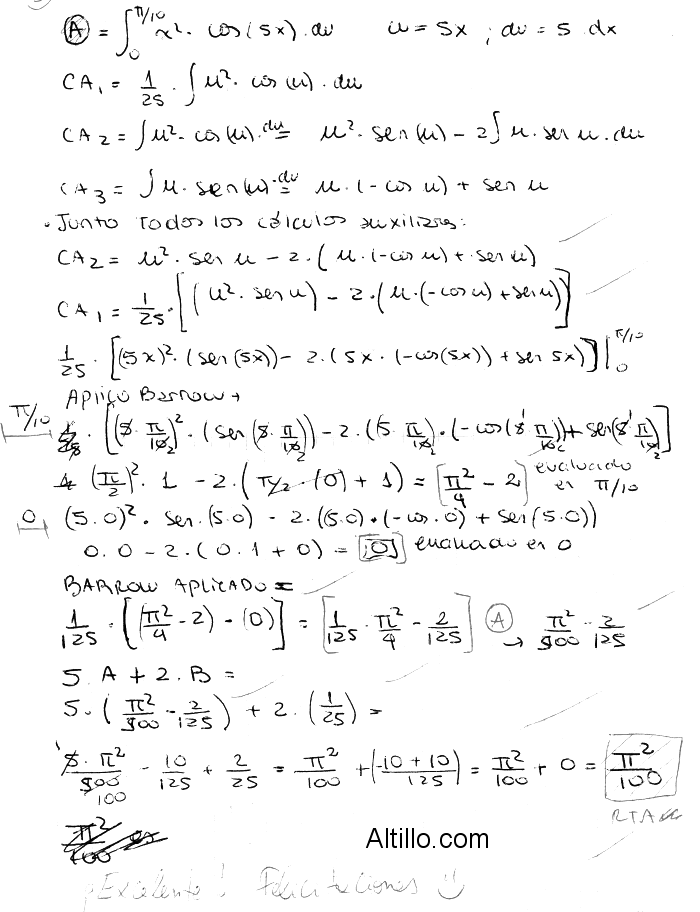 (A) = ∫₀^{π/10} x² · cos(5x) · du    u = 5x ; du = 5 dx
CA₁ = 1/25 · ∫ u² · cos (u) · du
CA₂ = ∫ u² · cos (u) · du = u² · sen (u) − 2 ∫ u · sen u · du
CA₃ = ∫ u · sen (u) · du = u · (−cos u) + sen u
· Junto todos los cálculos auxiliares:
CA₂ = u² · sen u − 2 · (u · (−cos u) + sen u)
CA₁ = 1/25 · [(u² · sen u) − 2 · (u · (−cos u) + sen u)]
1/25 · [(5x)² · (sen (5x)) − 2 · (5x · (−cos(5x)) + sen 5x)] |₀^{π/10}
Aplico Barrow →
π/10 · [(5 · π/10)² · (sen (5 · π/10)) − 2 · ((5 · π/10) · (−cos (5 · π/10)) + sen (5 · π/10))]
(π/2)² · 1 − 2 · (π/2 · (0) + 1) = [π²/4 − 2] evaluado en π/10
0 (5.0)² · sen · (5.0) − 2 · ((5.0) · (−cos · 0) + sen (5.0))
0.0 − 2 · (0.1 + 0) = [0] evaluado en 0
BARROW APLICADO =
1/125 · [(π²/4 − 2) − (0)] = [1/125 · π²/4 − 2/125] (A) → π²/500 − 2/125
5.A + 2.B =
5 · (π²/500 − 2/125) + 2 · (1/25) =
5 · π²/500 − 10/125 + 2/25 = π²/100 + (−10 + 10)/125 = π²/100 + 0 = π²/100
100
RTA
π²/100
Altillo.com
¡Excelente! Felicitaciones